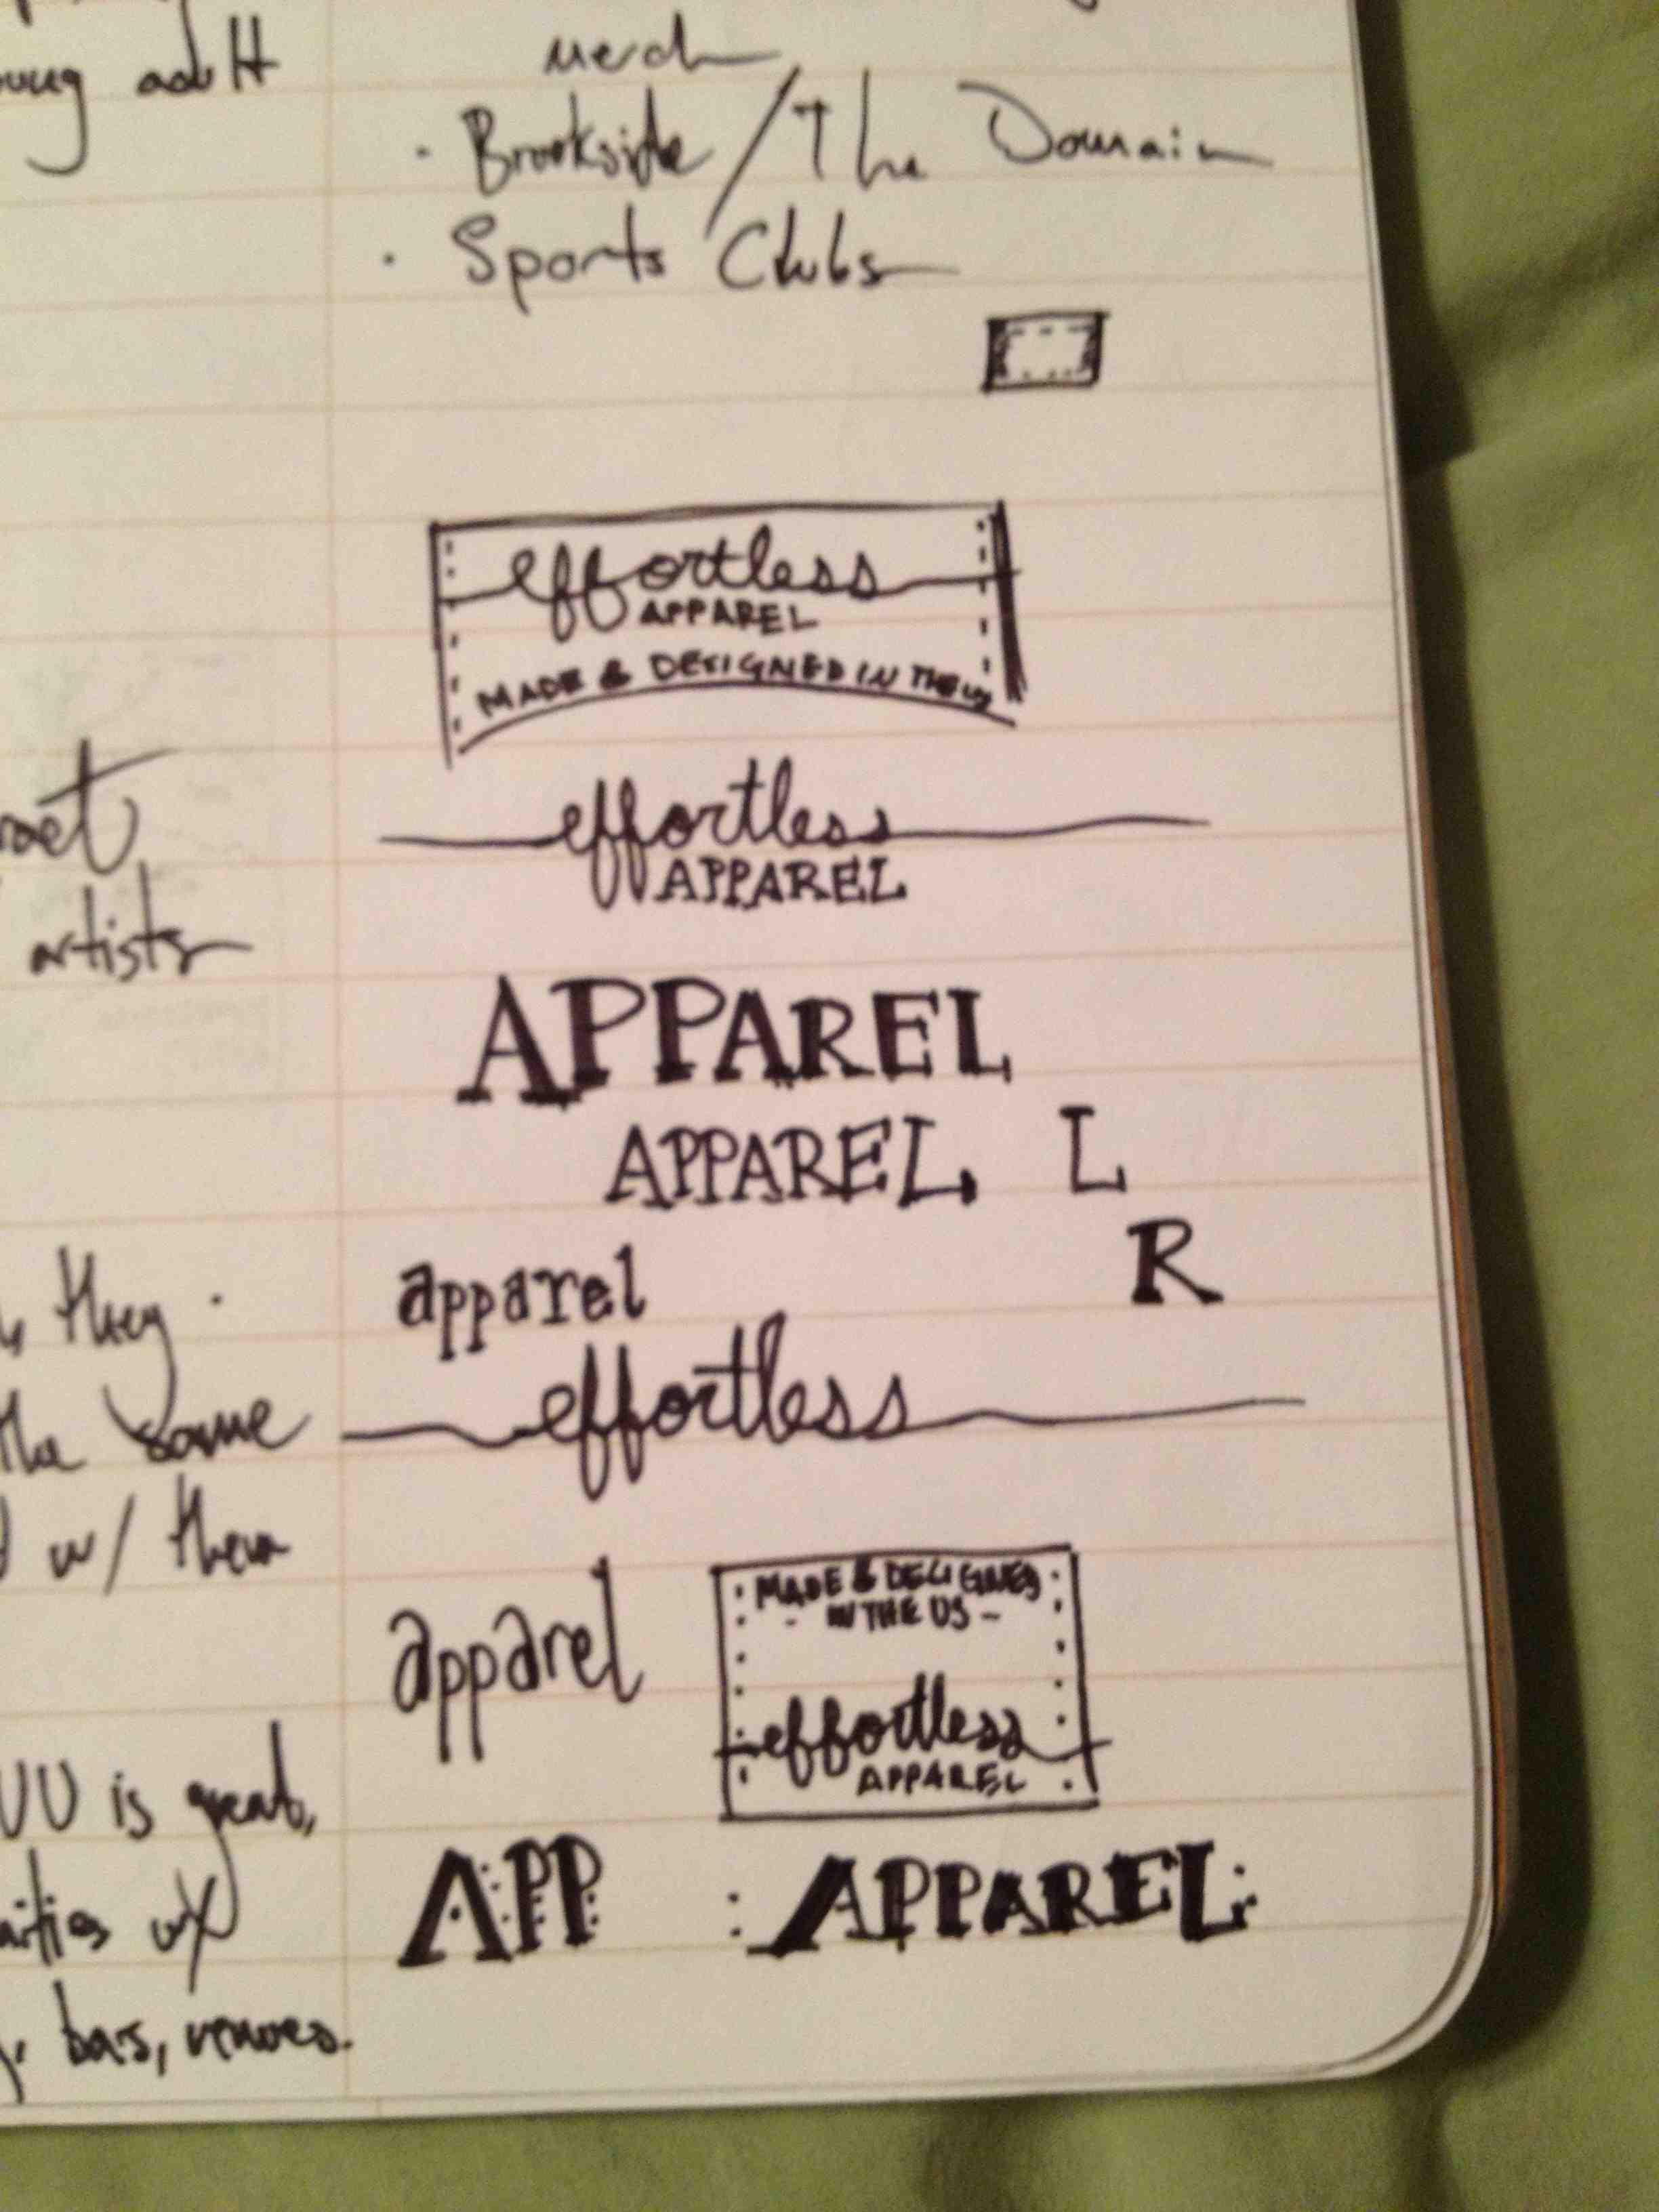 adult
merch
· Brookside / The Domain
· Sports Clubs
effortless
APPAREL
MADE & DESIGNED IN THE US
effortless
APPAREL
artists
APPAREL
APPAREL L
R
apparel
they
effortless
the same
w/ them
apparel
MADE & DESIGNED
- IN THE US -
effortless
APPAREL
is great,
APP : APPAREL :
bars, venues.